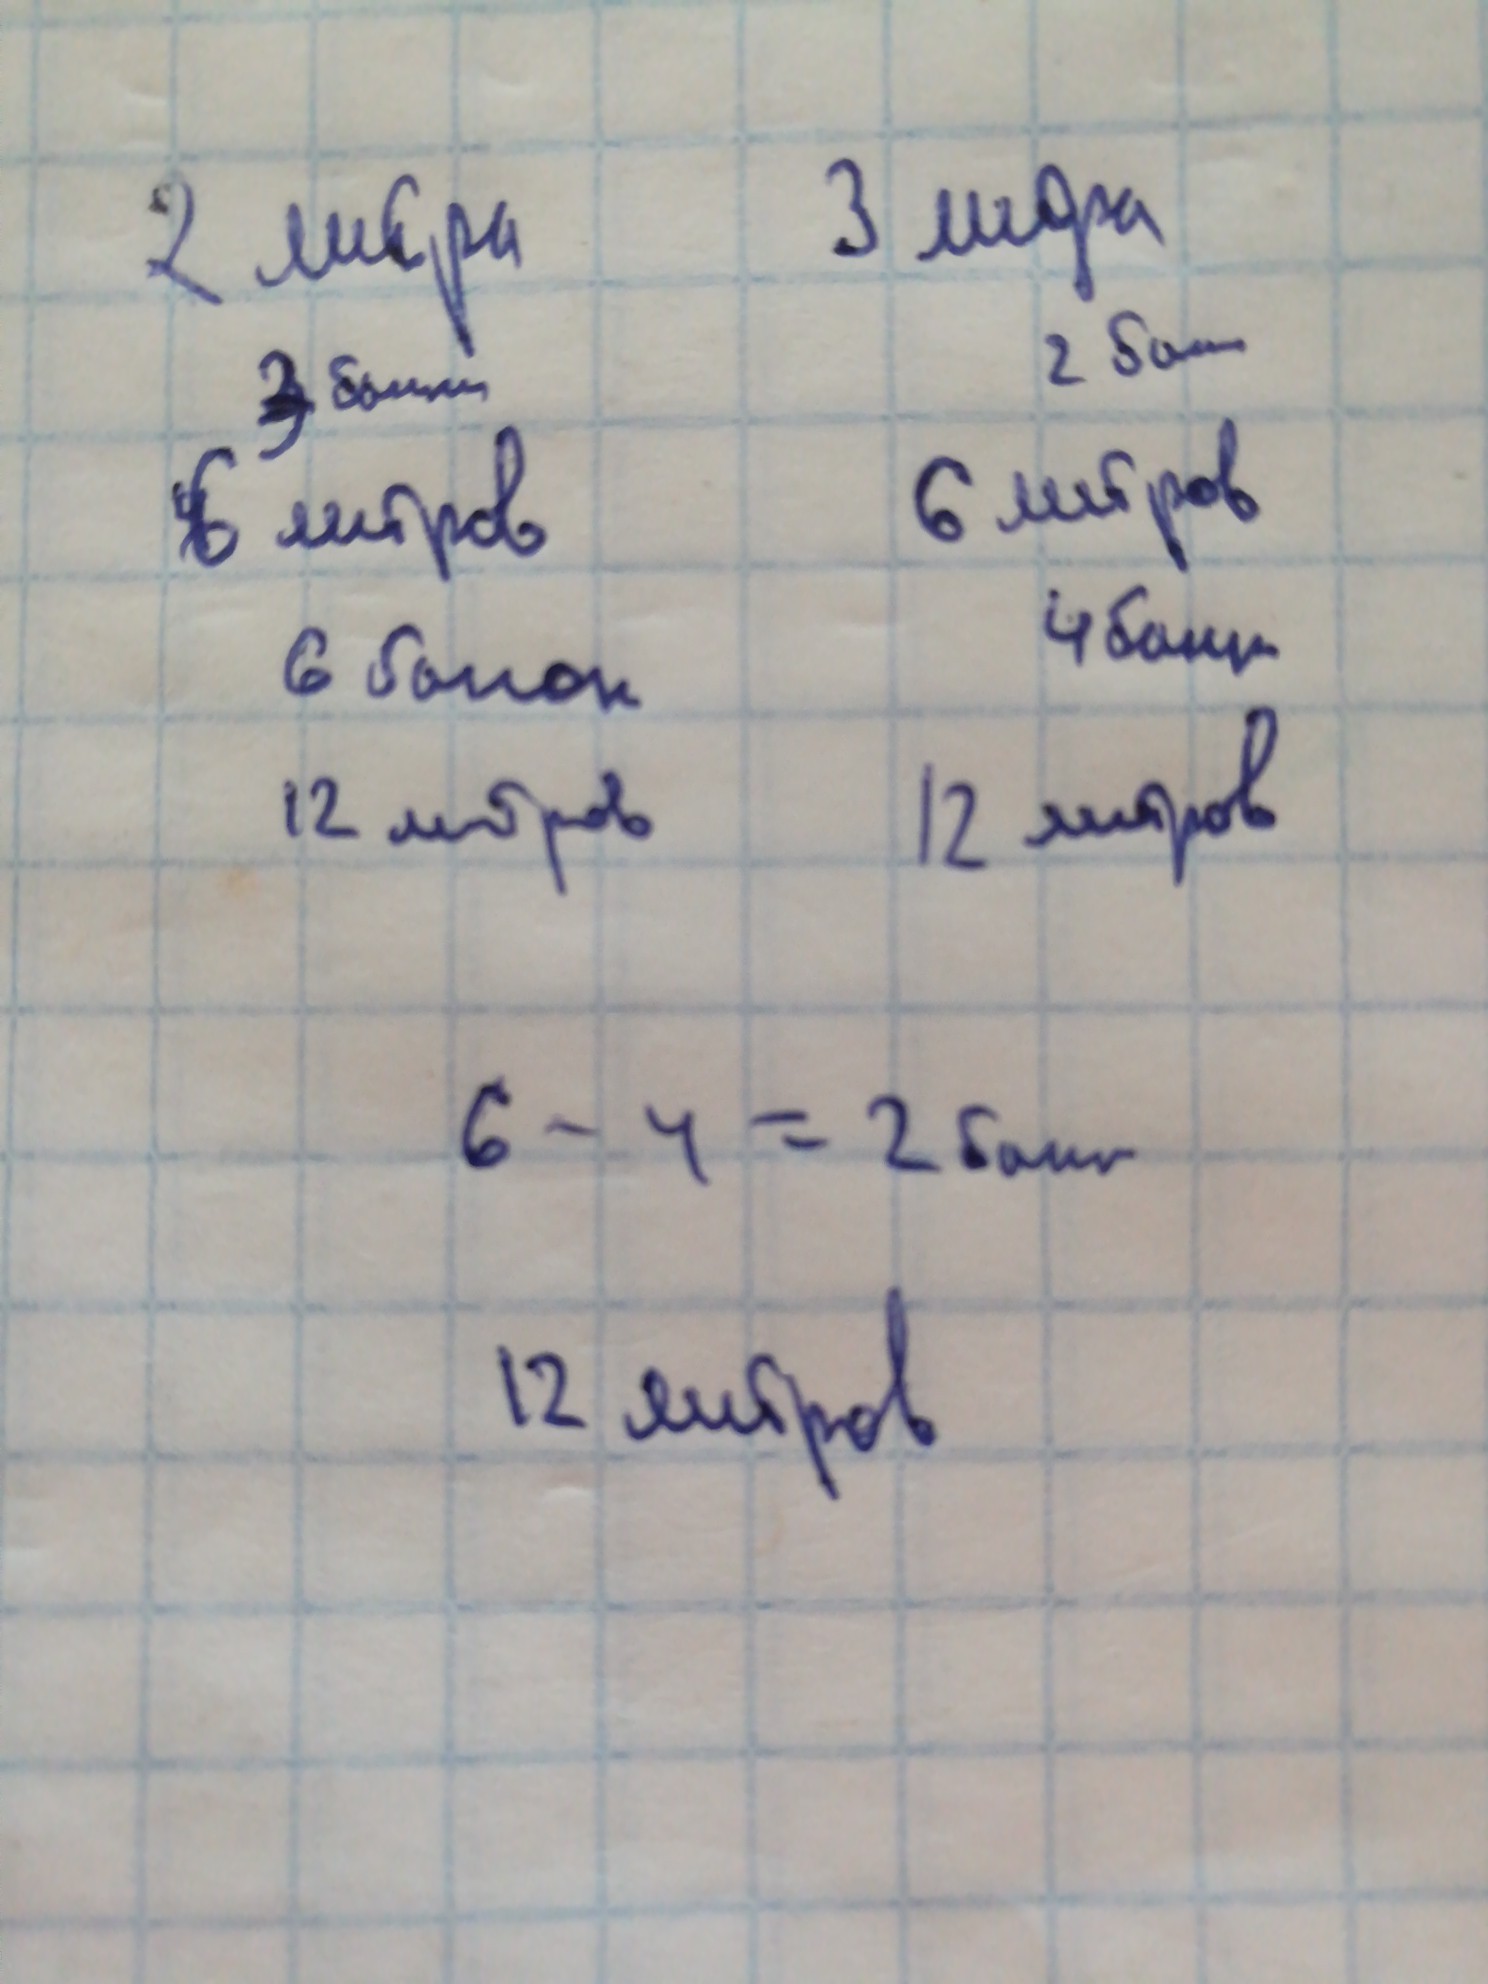 2 литра 3 литра
3 банки 2 банк
6 литров 6 литров
6 банок 4 банки
12 литров 12 литров
6 - 4 = 2 банки
12 литров